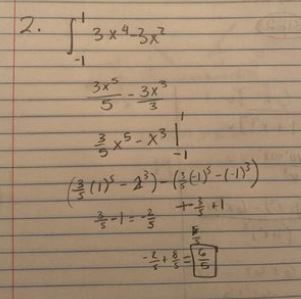 2. ∫₋₁¹ 3x⁴-3x²
3x⁵/5 - 3x³/3
3/5 x⁵ - x³ |₋₁¹
(3/5 (1)⁵ - 1³) - (3/5 (-1)⁵ - (-1)³)
3/5 - 1 = -2/5 + 3/5 + 1
8/5
-2/5 + 8/5 = 6/5